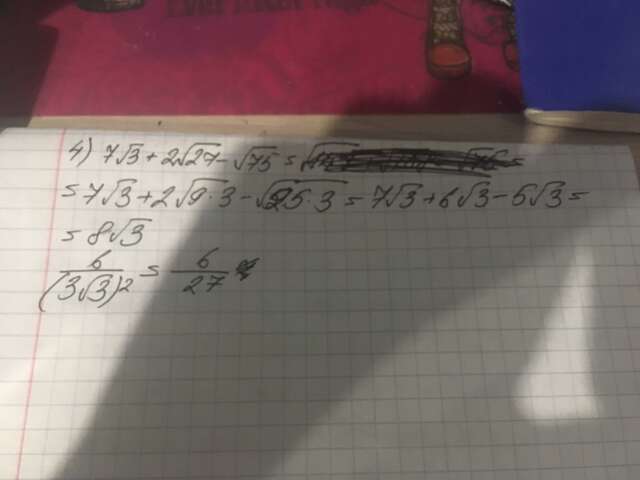 4) 7√3 + 2√27 - √75 =
= 7√3 + 2√9·3 - √25·3 = 7√3 + 6√3 - 5√3 =
= 8√3
6/(3√3)² = 6/27